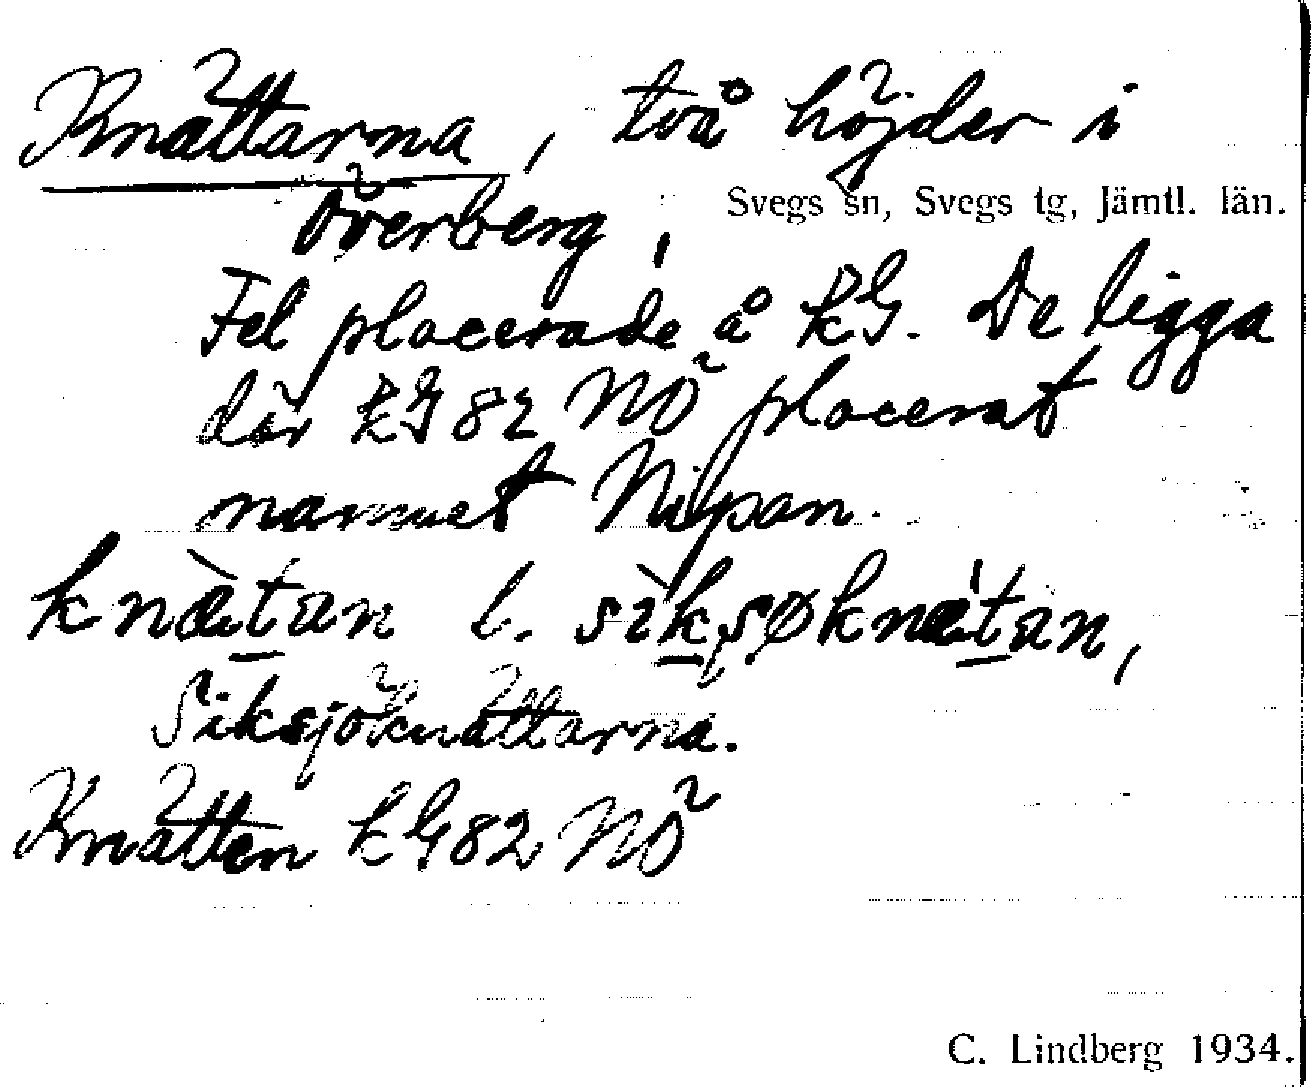 Knättarna, två höjder i
Svegs sn, Svegs tg, Jämtl. län.
Överberg,
Fel placerade å kG. De ligga
där kG 82 NÖ placerat
namnet Nipan.
knæ̀tan l. sìksøknæ̀tan,
Siksjöknättarna.
Knätten kG82 NÖ
C. Lindberg 1934.